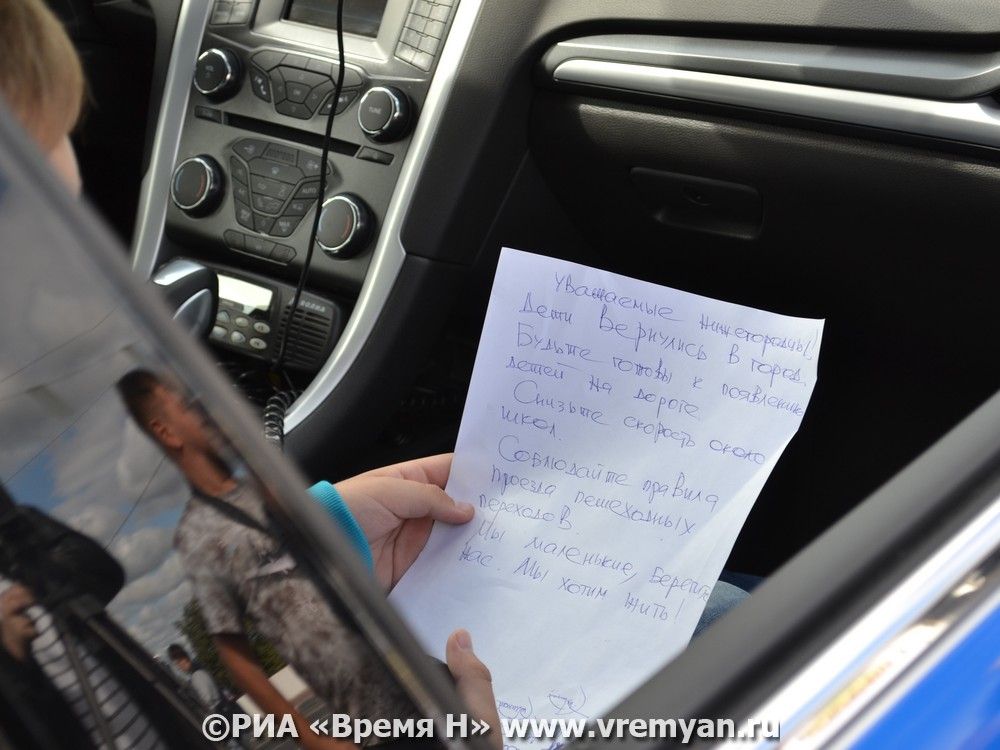 Уважаемые нижегородцы!
Дети вернулись в город.
Будьте готовы к появлению
детей на дороге
Снизьте скорость около
школ.
Соблюдайте правила
проезда пешеходных
переходов.
Мы маленькие, берегите
нас. Мы хотим жить!
AUTO
TUNE
©РИА «Время Н» www.vremyan.ru